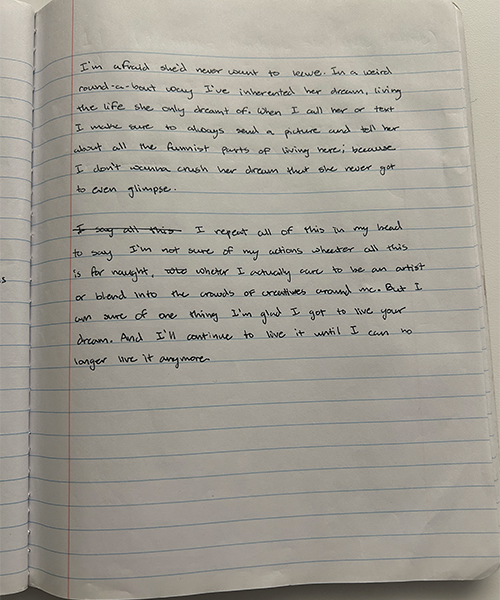 I'm afraid she'd never want to leave. In a weird
round-a-bout way I've inherented her dream, living
the life she only dreamt of. When I call her or text
I make sure to always send a picture and tell her
about all the funnist parts of living here; because
I don't wanna crush her dream that she never got
to even glimpse.
I say all this I repeat all of this in my head
to say I'm not sure of my actions wheater all this
is for naught, wheter I actually care to be an artist
or blend into the crowds of creatives around me. But I
am sure of one thing I'm glad I got to live your
dream. And I'll continue to live it until I can no
longer live it anymore.